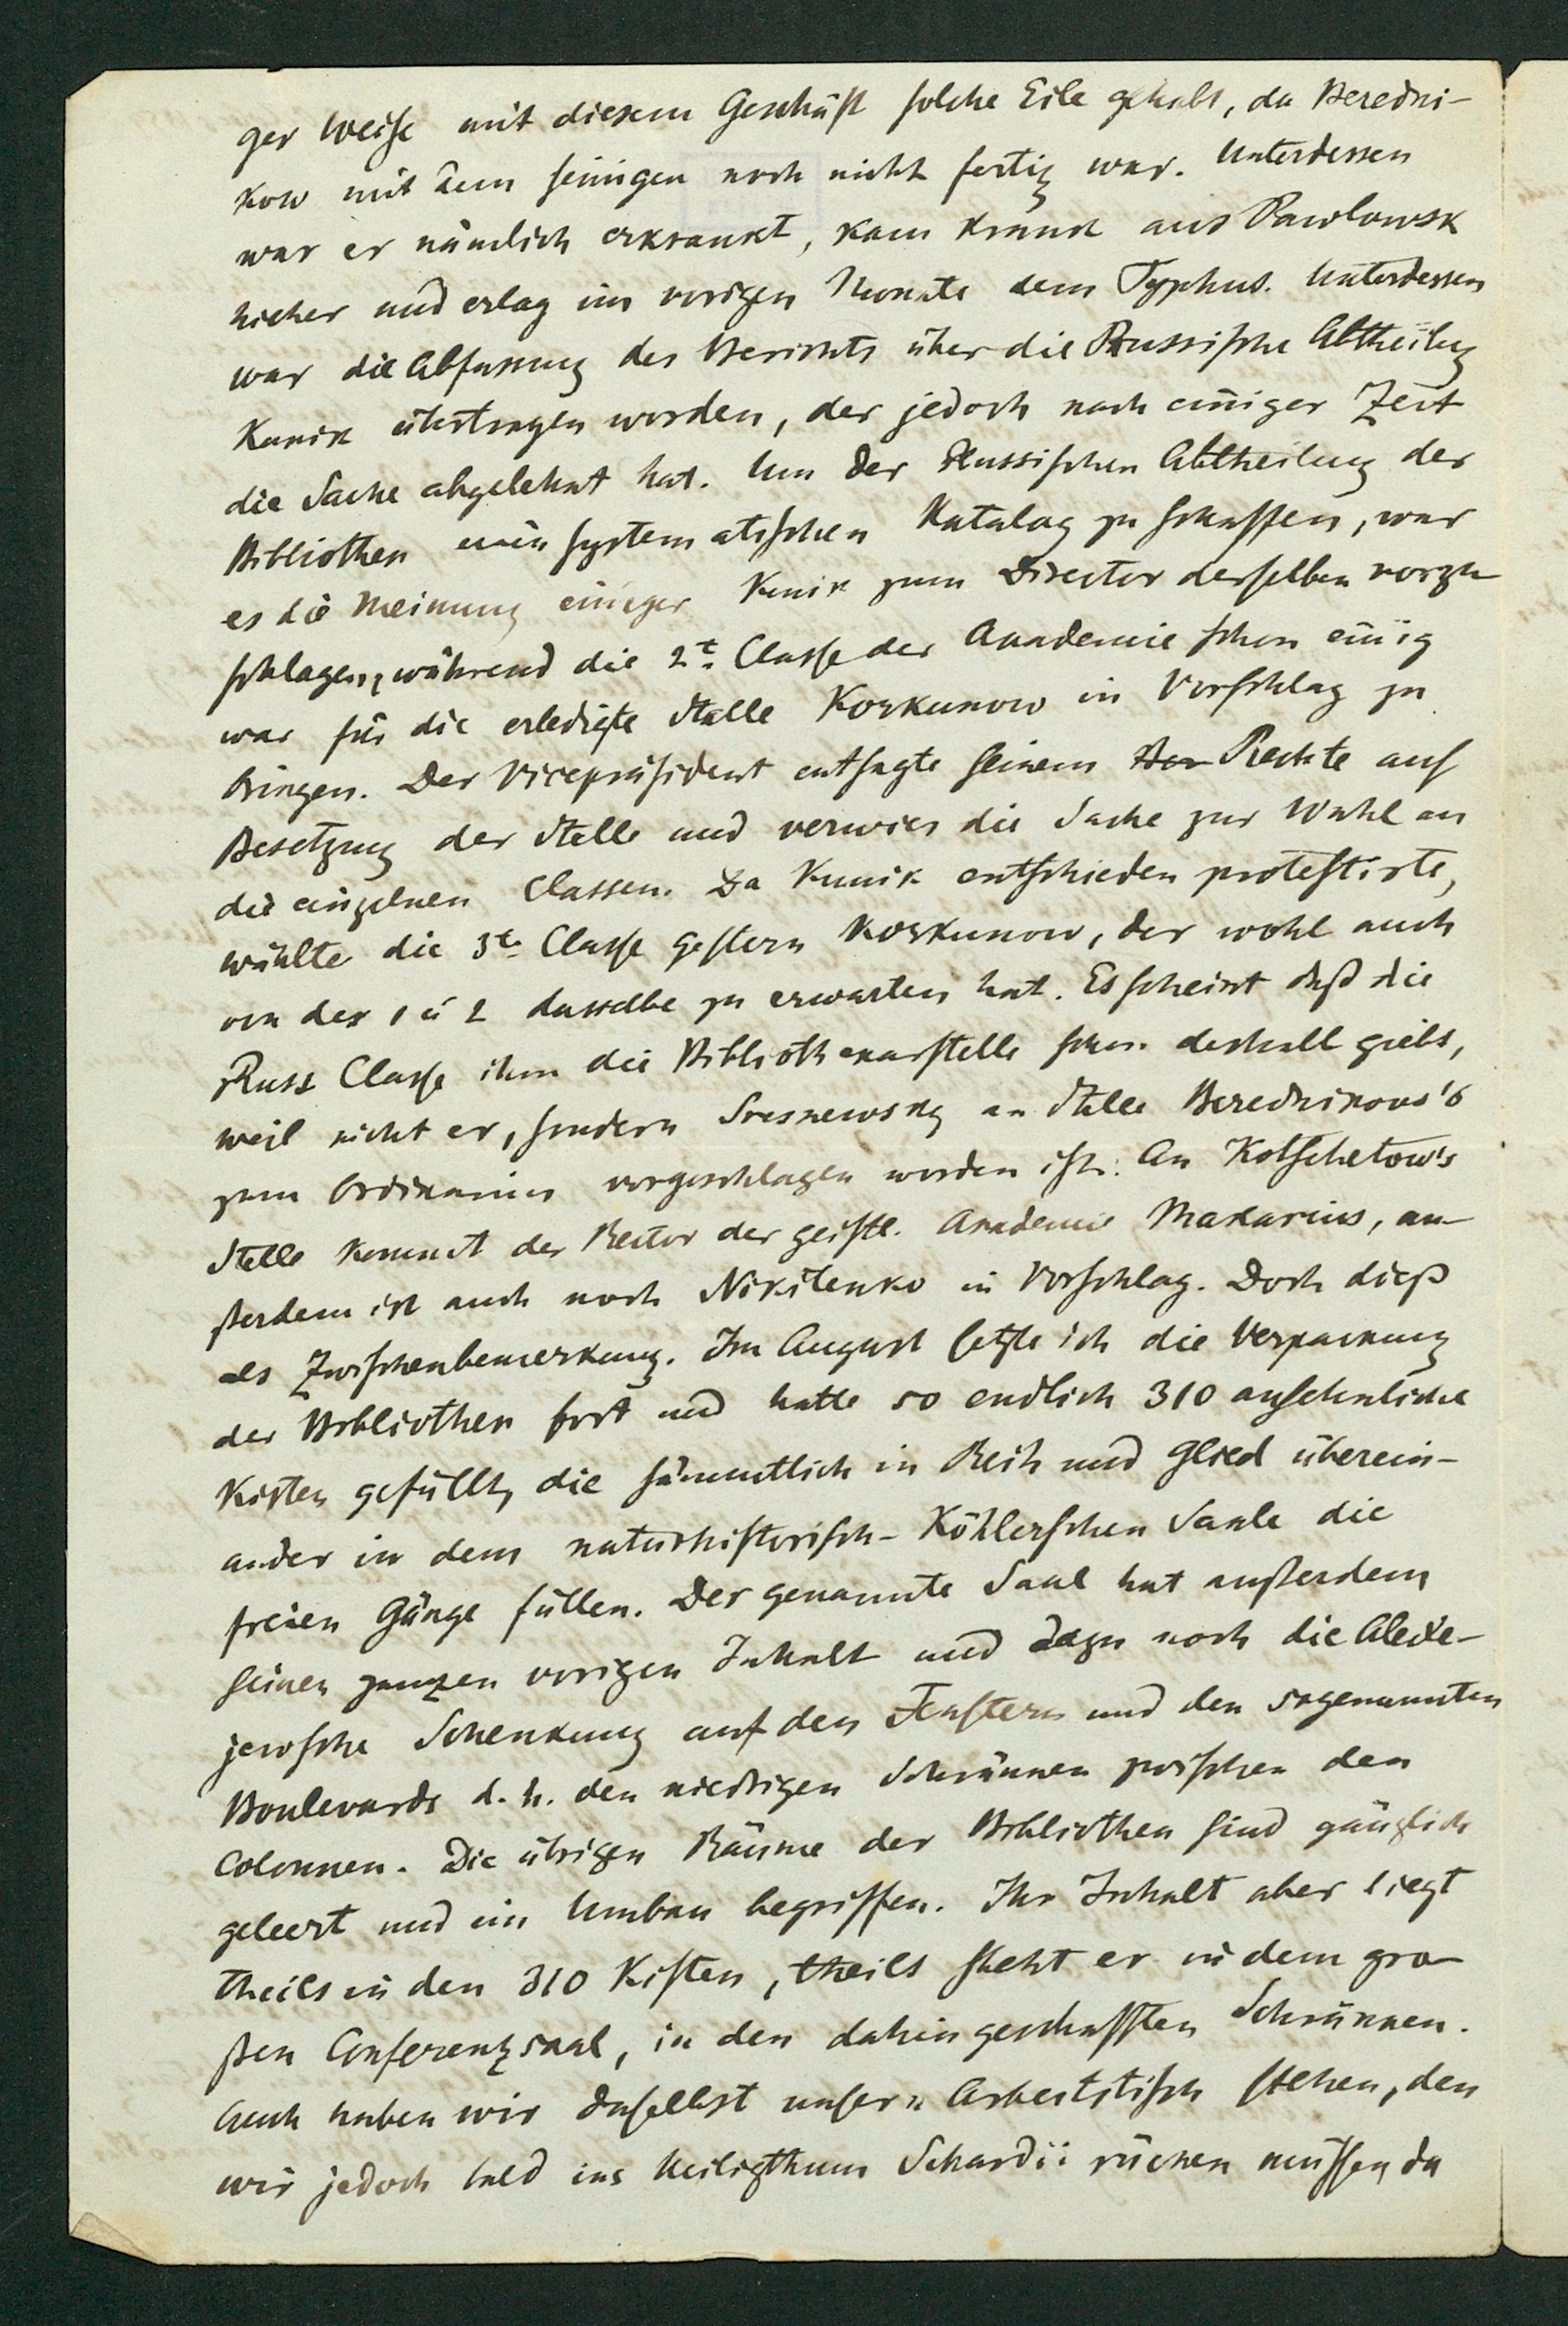 ger Weise mit diesem Geschäft solche Eile gehabt, da Beredni-
kow mit dem seinigen noch nicht fertig war. Unterdessen
war er nämlich erkrankt, kam krank aus Pawlowsk
hieher und erlag im vorigen Monate dem Typhus. Unterdessen
war die Abfassung des Berichts über die Russische Abtheilung
Kunik übertragen worden, der jedoch nach einiger Zeit
die Sache abgelehnt hat. Um der Russischen Abtheilung der
Bibliothek einen systematischen Katalog zu schaffen, war
es die Meinung einiger Kunik zum Director derselben vorzu
schlagen, während die 2te Classe der Akademie schon einig
war für die erledigte Stelle Korkunow in Vorschlag zu
bringen. Der Vicepräsident entsagte seinem Rechte auf
Besetzung der Stelle und verwies die Sache zur Wahl an
die einzelnen Classen. Da Kunik entschieden protestirte,
wählte die 3te Classe gestern Korkunow, der wohl auch
von der 1 u 2 dasselbe zu erwarten hat. Es scheint daß die
Russ Classe ihm die Bibliothekarstelle schon deshalb giebt,
weil nicht er, sondern Sresnewsky an Stelle Berednikows's
zum Ordinarius vorgeschlagen worden ist. An Kotschetow's
Stelle kommt der Rector der geistl. Akademie Makarius, au-
ßerdem ist auch noch Nikitenko in Vorschlag. Doch dieß
als Zwischenbemerkung. Im August setzte ich die Verpackung
der Bibliothek fort und hatte so endlich 310 ansehnliche
Kisten gefüllt, die sämmtlich in Reih und Glied überein-
ander in dem naturhistorisch-Köhlerschen Saale die
freien Gänge füllen. Der genannte Saal hat außerdem
seinen ganzen vorigen Inhalt und dazu noch die Alexe-
jewsche Schenkung auf den Fenstern und den sogenannten
Boulevards d. h. den niedrigen Schränken zwischen den
Colonnen. Die übrigen Räume der Bibliothek sind gänzlich
geleert und im Umbau begriffen. Ihr Inhalt aber liegt
theils in den 310 Kisten, theils steht er in dem gro-
ßen Conferenzsaal, in den dahin geschafften Schränken.
Auch haben wir daselbst unsern Arbeitstisch stehen, den
wir jedoch bald ins Heiligthum Schardii rücken müssen, da